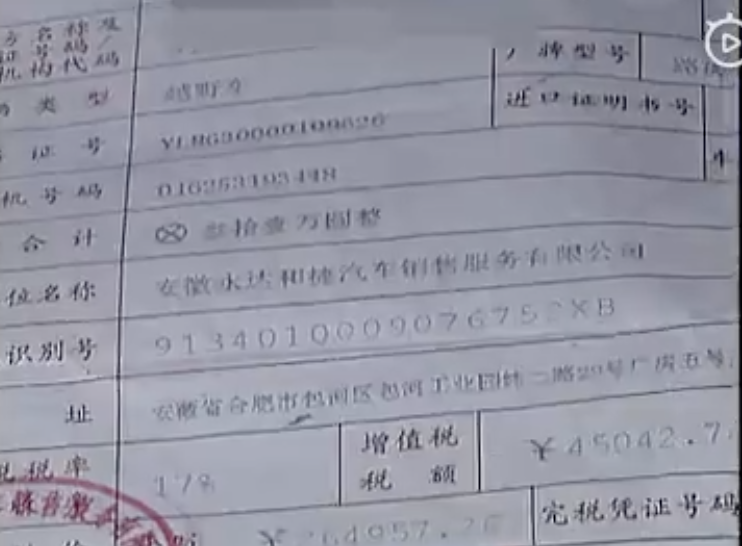 方名称及
证号码/
机构代码
类型 越野车 厂牌型号 路虎
证号 YLR630000109626 进口证明书号
机号码 016253193448
合计 ⊗ 叁拾壹万圆整
位名称 安徽永达和捷汽车销售服务有限公司
识别号 9134010009076752XB
址 安徽省合肥市包河区包河工业园纬二路29号厂房五号
税率 17% 增值税税额 ¥45042.7
¥264957.26 完税凭证号码